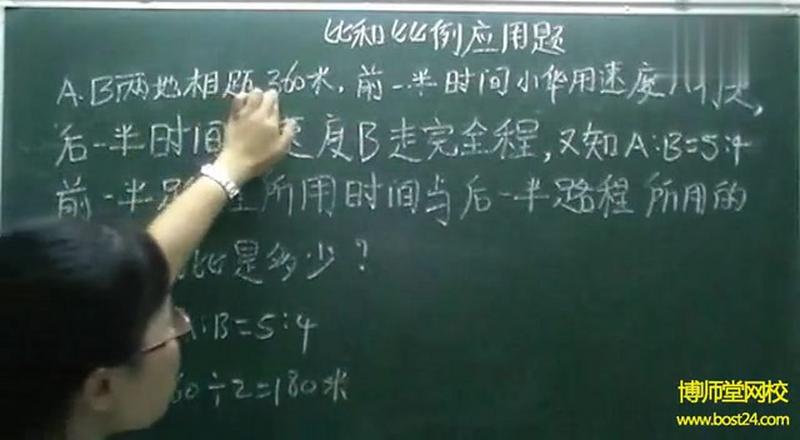 比和比例应用题
A.B两地相距360米,前一半时间小华用速度A行走,
后一半时间 速度B走完全程,又知A:B=5:4
前一半路程所用时间与后一半路程所用的
比是多少?
A:B=5:4
60÷2=180米
博师堂网校
www.bost24.com